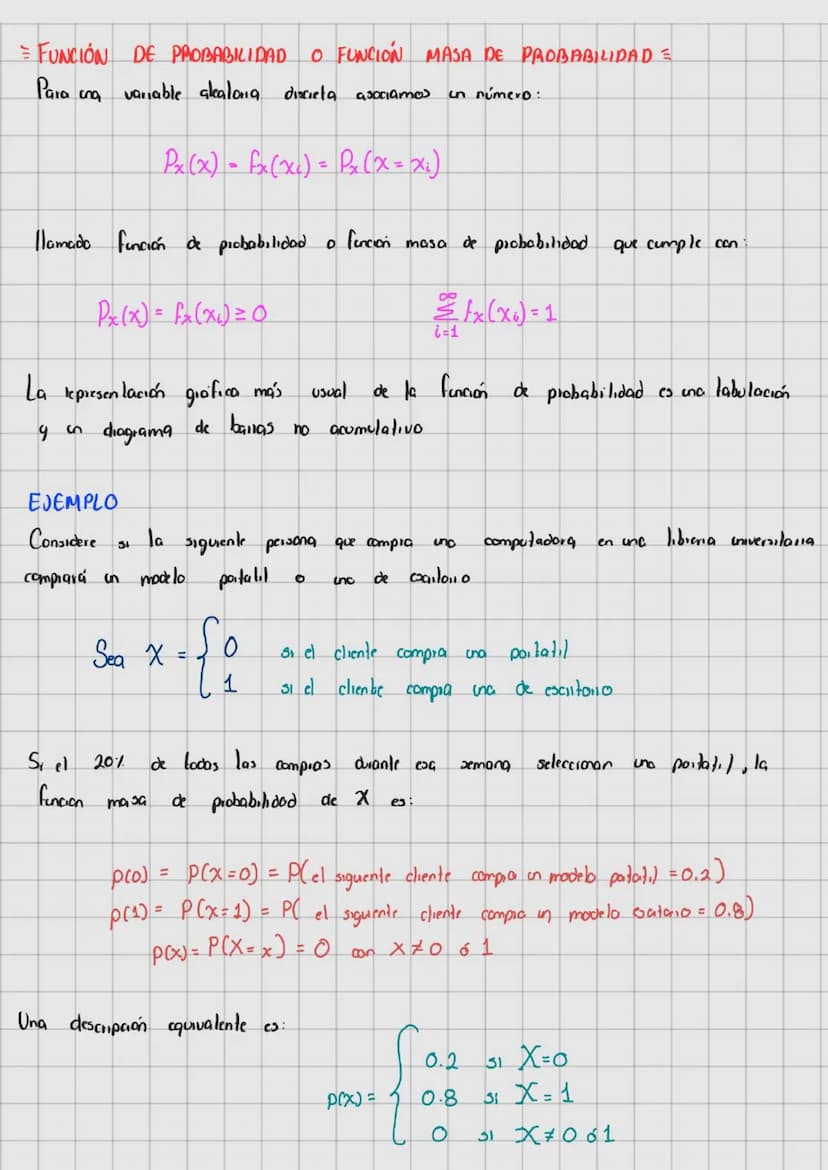 = FUNCIÓN DE PROBABILIDAD O FUNCIÓN MASA DE PROBABILIDAD =
Para una variable aleatoria discreta asociamos un número:
Px(x) = fx(xi) = Px(X = xi)
llamado función de probabilidad o función masa de probabilidad que cumple con:
Px(x) = fx(xi) ≥ 0 ∞Σi=1 fx(xi) = 1
La representación gráfica más usual de la función de probabilidad es una tabulación
y un diagrama de barras no acumulativo
EJEMPLO
Considere si la siguiente persona que compra una computadora en una libreria universitaria
comprará un modelo portatil o uno de escritorio
Sea X = { 0 si el cliente compra una portatil
1 si el cliente compra una de escritorio
Si el 20% de todas las compras durante esa semana seleccionan una portatil, la
funcion masa de probabilidad de X es:
p(0) = P(X=0) = P(el siguente cliente compra un modelo portatil = 0.2)
p(1) = P(X=1) = P( el siguente cliente compra un modelo escritorio = 0.8)
p(x) = P(X = x) = 0 con X ≠ 0 ó 1
Una descripción equivalente es:
p(x) = { 0.2 si X=0
0.8 si X = 1
0 si X ≠ 0 ó 1